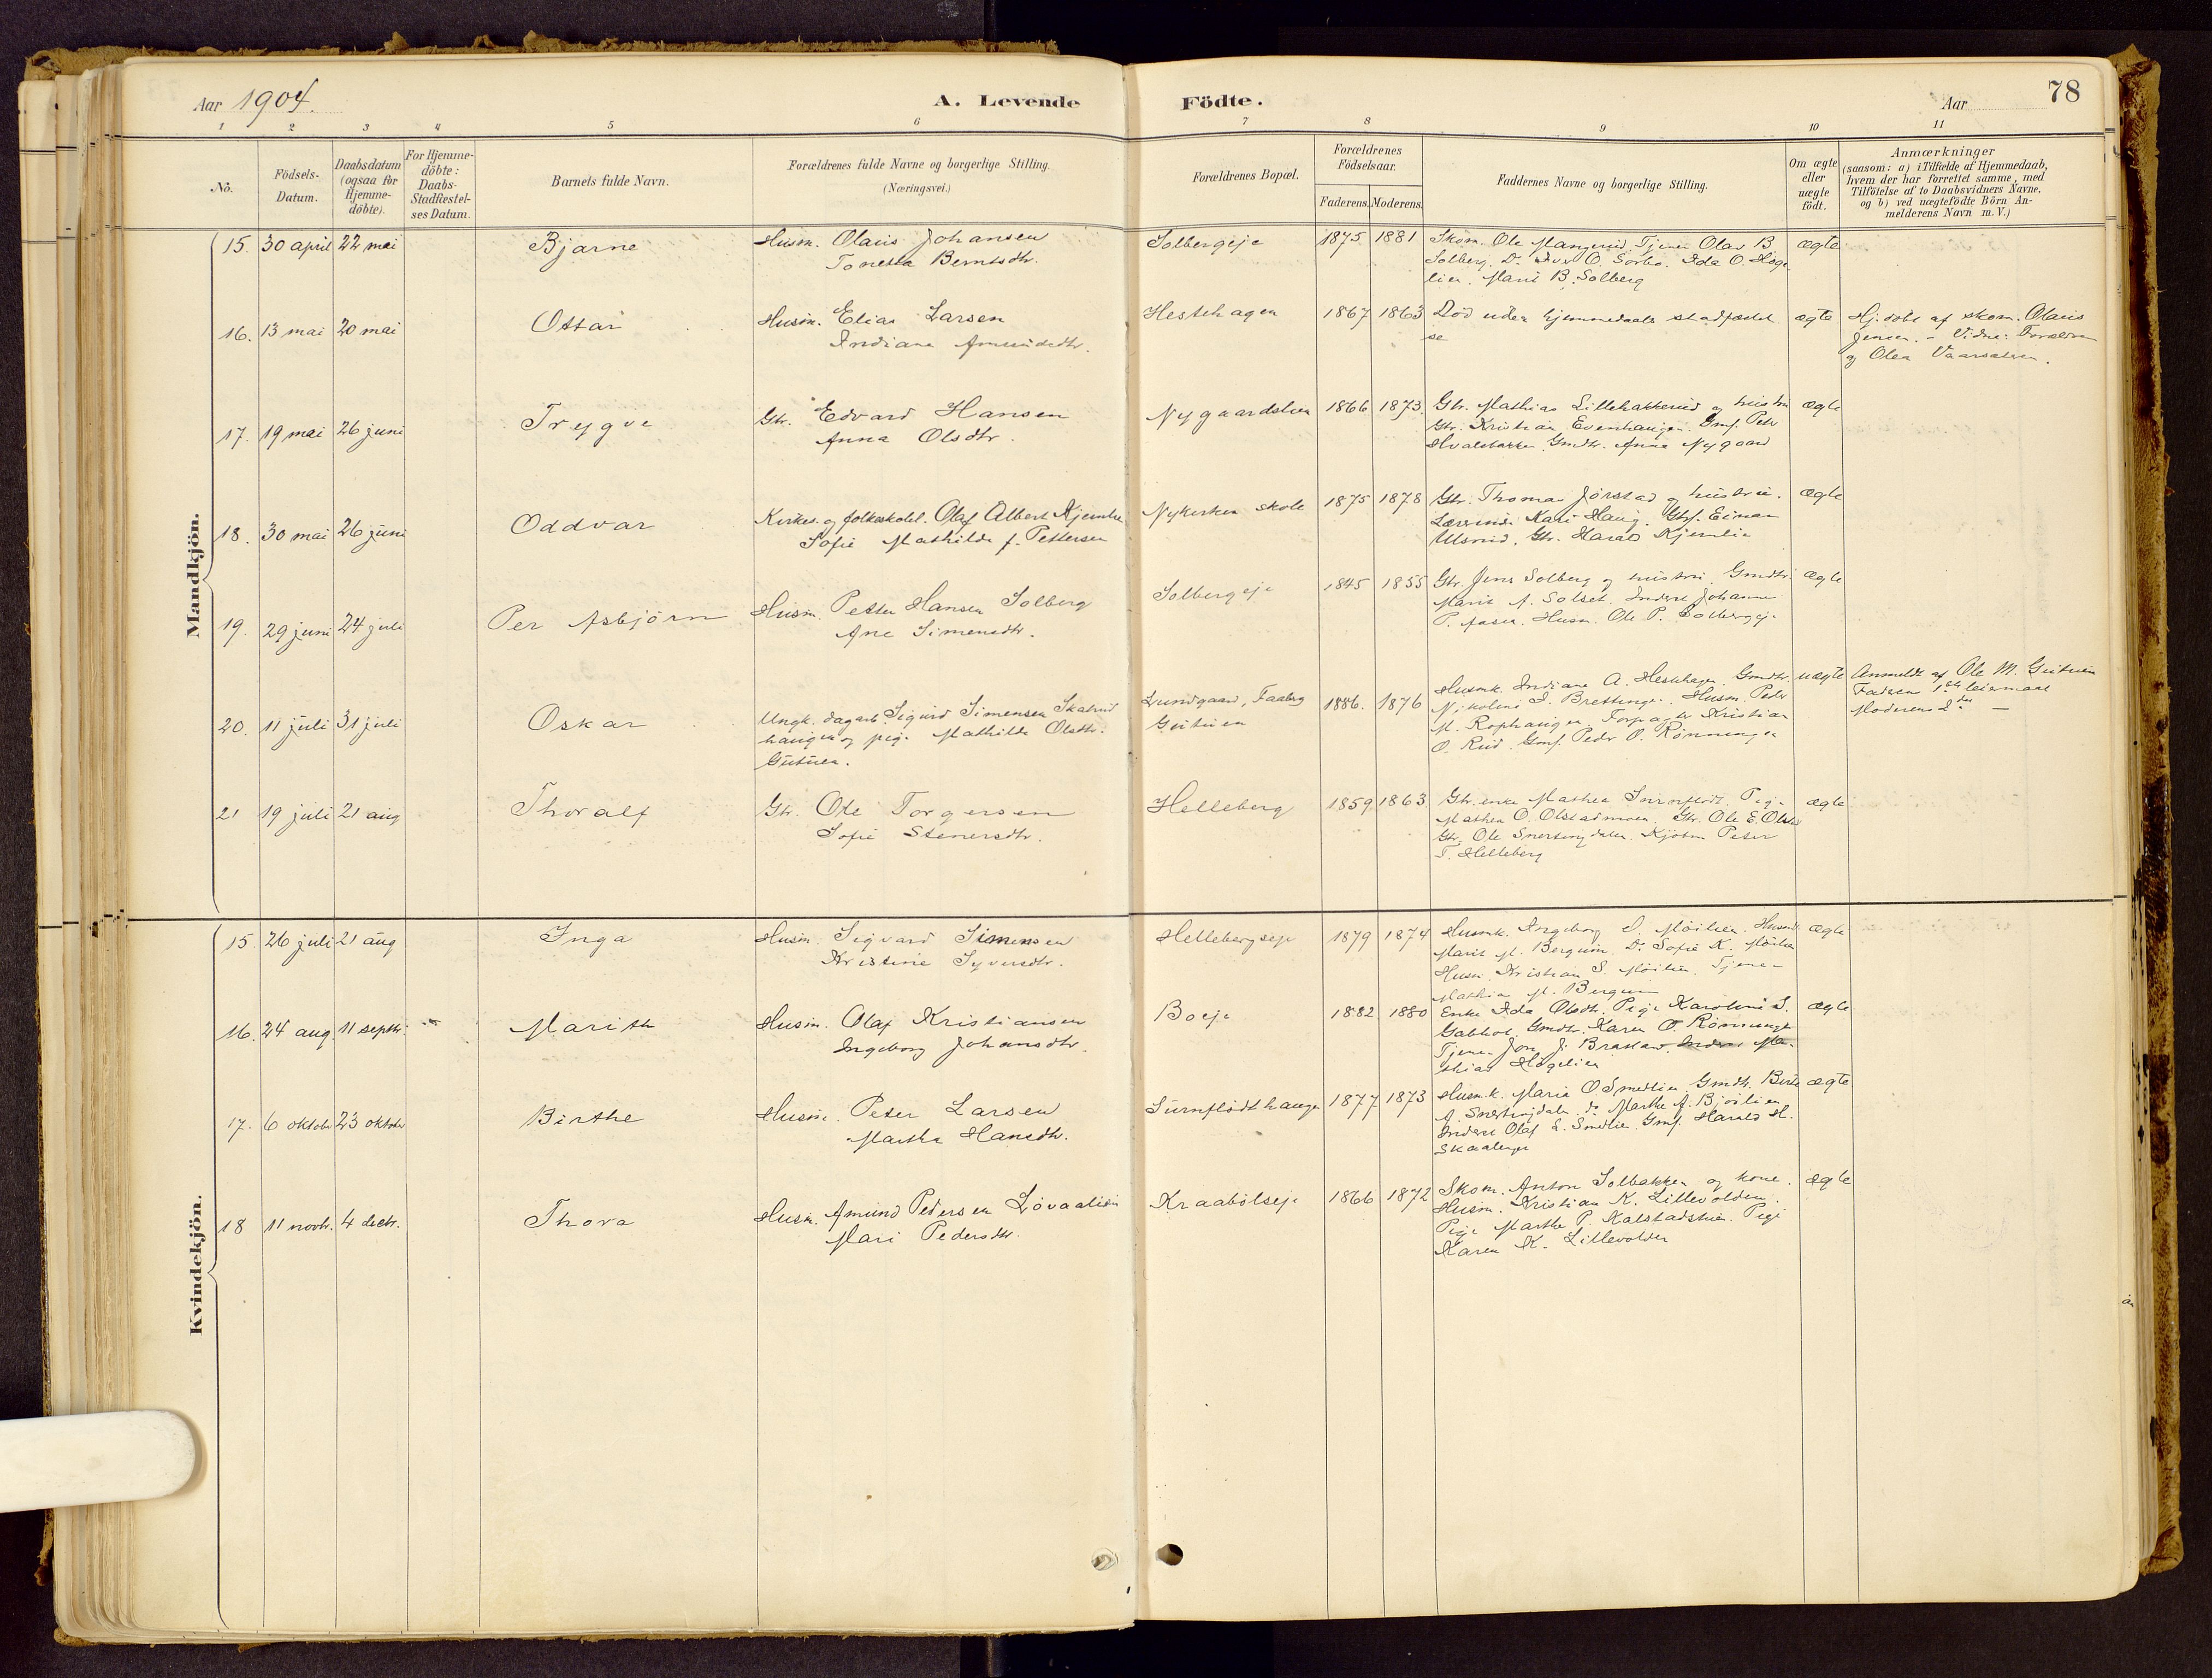 Aar 1904.
A. Levende Födte.
Aar
78
1 2 3 4 5 6 7 8 9 10 11
No.
Födsels-
Datum.
Daabsdatum
(ogsaa for
Hjemme-
döbte).
For Hjemme-
döbte:
Daabs-
Stadfestel-
ses Datum.
Barnets fulde Navn.
Forældrenes fulde Navne og borgerlige Stilling.
(Næringsvei.)
Forældrenes Bopæl.
Forældrenes
Födselsaar.
Faderens. Moderens.
Faddernes Navne og borgerlige Stilling.
Om ægte
eller
uægte
födt.
Anmærkninger
(saasom: a) i Tilfælde af Hjemmedaab,
hvem der har forrettet samme, med
Tilföielse af to Daabsvidners Navne,
og b) ved uægtefödte Börn An-
melderens Navn m. V.)
Mandkjön.
15. 30 april 22 mai
Bjarne
Husm. Olaus Johansen
Tonetta Berntsdtr.
Solbergeje
1875 1881
Skom. Ole Mangerud, Tjener Olav B
Solberg. Do Iver O Sorbo. Ida O. Høge
lien. Marit B. Solberg
ægte
16. 13 mai 20 mai
Ottar
Husm. Elias Larsen
Indiana Amundsdtr.
Hestehagen
1867 1863
Död uden hjemmedaabs stadfæstel
se
ægte
Hj. döbt af skom. Olaus
Jensen. - Vidne: Forældrene
og Olea Vaarsæteren.
17. 19 mai 26 juni
Trygve
Gbr. Edvard Hansen
Anna Olsdtr.
Nygaardslien
1866 1873.
Gbr. Mathias Lillehakkerud og hustru
Gbr. Kristian Evenhaugen. Gmf. Peder
Hvalebakken. Gmdtr. Anna Nygaard
ægte
18. 30 mai 26 juni
Oddvar
Kirkes. og folkeskolel. Olaf Albert Kjemlie
Sofie Mathilde f. Pettersen
Nykirken skole
1875 1878
Gbr. Thomas Jörstad og hustru.
Lærerinde Kari Haug. Gbf. Einar
Ulsrud. Gbr. Harald Kjemlie
ægte
19. 29 juni 24 juli
Per Asbjörn
Husm. Petter Hansen Solberg
Ane Simensdtr.
Solbergeje
1845 1855
Gbr. Jens Solberg og hustru. Gmdtr
Marit A. Solset. Inderst Johannes
P. Aasen. Husm. Ole P. Solbergeje
ægte
20. 11 juli 31 juli
Oskar
Ungk. dagarb. Sigurd Simensen Skaterud
haugen og pige Mathilde Olsdtr.
Gutuen.
Lundgaard, Faaberg
Gutuen
1886. 1876
Husmk. Indiane A. Hestehagen. Gmdtr.
Nikoline I. Brettinge. Husm. Peder
M. Rophaugen. Forpagter Kristian
O. Rud. Gmf. Peder O. Rönningen
uægte
Anmeldt af Ole M. Gutuen
Faderens 1ste leiermaal
Moderens 2det —
21 19 juli 21 aug
Thoralf
Gbr. Ole Torgersen
Sofie Stenersdtr.
Helleberg
1859 1863
Gbr. enke Mathea Surnflödt. Pige
Mathea O. Olstadmoen. Gbr. Ole E. Olstad
Gbr. Ole Snertingdalen. Kjøbm Peter
T. Helleberg
ægte
Kvindekjön.
15. 26 juli 21 aug
Inga
Husm. Sigvard Simensen
Kristine Syversdtr.
Hellebergseje
1879 1874
Husmk. Ingeborg S. Möilien. Husmk
Marit M. Bergum. Do Sofie K. Möilien
Husm. Kristian S. Möilien. Tjener
Mathias M. Bergum
ægte
16. 24 aug. 11 septbr.
Marith
Husm. Olaf Kristiansen
Ingeborg Johansdtr.
Boeje
1882 1880
Enke Ida Olsdtr. Pige Karoline S.
Gabhol. Gmdtr. Karen O. Rönningen
Tjener Jon J. Brastad. Inderst Ma-
thias Högelien
ægte
17. 6 oktobr 23 oktobr
Birthe
Husm. Peter Larsen
Marthe Hansdtr.
Surnflödthaugen
1877 1873
Husmk. Marie O Smedlien. Gmdtr. Birte
A. Snertingdalen. do Marthe A. Bjöilien
Inderst Olaf L. Smedlien. Gmf. Harald H.
Skaalenge
ægte
18 11 novbr. 4 decbr.
Thora
Husm. Amund Pedersen Lövaalien
Mari Pedersdtr.
Kraabölseje
1866 1872
Skom. Anton Solbakken og kone.
Husm. Kristian K. Lillevolden.
Pige Marthe P. Kalstadstuen. Pige
Karen K. Lillevolden
ægte